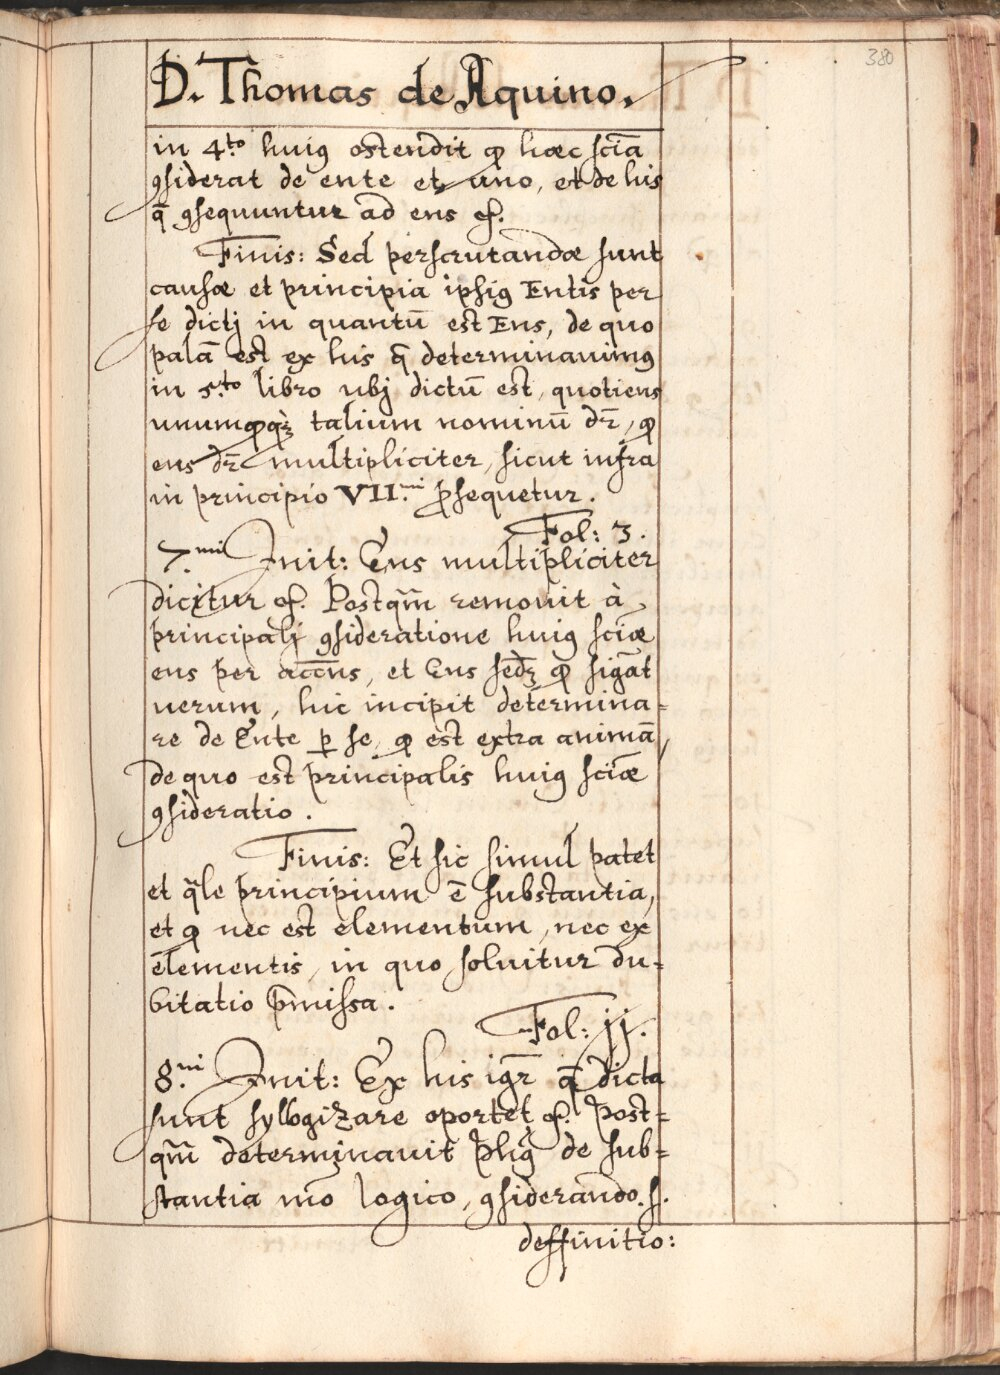 380
D. Thomas de Aquino.
in 4.to huiꝰ ostendit ꝙ hæc scīa
ꝯsiderat de ente et uno, et de his
q̄ ꝯsequuntur ad ens ec.
Finis: Sed perscrutandæ sunt
causæ et principia ipsiꝰ Entis per
se dictj in quantū est Ens, de quo
palā est ex his q̄ determinauimꝰ
in 5.to libro ubj dictū est, quotiens
unumꝙqꝫ talium nominū dr̄, ꝙ
ens dr̄ multipliciter, sicut infra
in principio VII.mi p̄sequetur.
Fol: 3.
7.mi Init: Ens multipliciter
dicitur ec. Postqm̄ remouit à
principalj ꝯsideratione huiꝰ sciæ
ens per accn̄s, et Ens sed̄ꝫ ꝙ sigāt
uerum, hic incipit determina-
re de Ente ꝑ se, ꝙ est extra animā,
de quo est principalis huiꝰ sciæ
ꝯsideratio.
Finis: Et sic simul patet
et q̄le principium ē substantia,
et ꝙ nec est elementum, nec ex
elementis, in quo soluitur du-
bitatio p̄missa.
Fol: jj.
8.ui Init: Ex his igr̄ q̄ dicta
sunt syllogizare oportet ec. Post-
qm̄ determinauit phꝰ de sub-
stantia mō logico, ꝯsiderando .s.
deffinitio: